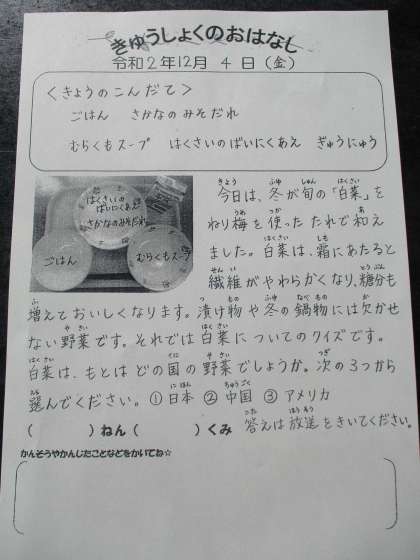 きゅうしょくのおはなし
令和2年12月 4 日（金）
＜きょうのこんだて＞
ごはん さかなのみそだれ
むらくもスープ はくさいのばいにくあえ ぎゅうにゅう
はくさいの
ばいにくあえ
さかなのみそだれ
ごはん
むらくもスープ
今日は、冬が旬の「白菜」を
ねり梅を使ったたれで和え
ました。白菜は、霜にあたると
繊維がやわらかくなり、糖分も
増えておいしくなります。漬け物や冬の鍋物には欠かせ
ない野菜です。それでは白菜についてのクイズです。
白菜は、もとはどの国の野菜でしょうか。次の3つから
選んでください。①日本 ②中国 ③アメリカ
（ ）ねん（ ）くみ 答えは放送をきいてください。
かんそうやかんじたことなどをかいてね☆